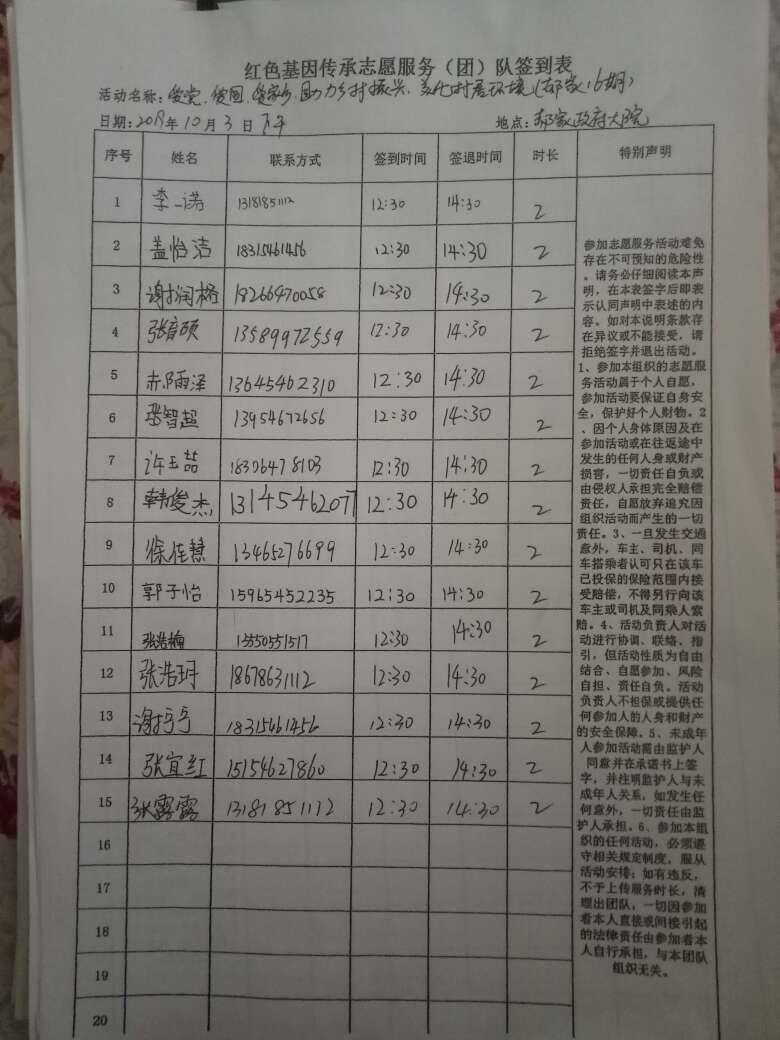 红色基因传承志愿服务(团)队签到表
活动名称：爱党、爱国、爱家乡.助力乡村振兴、美化村居环境(郝家16期)
日期：2019年10月3日下午 地点：郝家政府大院
序号 姓名 联系方式 签到时间 签退时间 时长 特别声明
1 李一诺 13181851112 12:30 14:30 2
2 盖怡洁 18315461456 12:30 14:30 2
3 谢润格 18266470058 12:30 14:30 2
4 张育硕 13589972559 12:30 14:30 2
5 雨泽 13645462310 12:30 14:30 2
6 张智超 13954672656 12:30 14:30 2
7 许玉喆 18306478103 12:30 14:30 2
8 韩俊杰 13145462077 12:30 14:30 2
9 徐佳慧 13465276699 12:30 14:30 2
10 郭子怡 15965452235 12:30 14:30 2
11 张浩楠 13550551517 12:30 14:30 2
12 张浩玥 18678631112 12:30 14:30 2
13 谢 18315461456 12:30 14:30 2
14 张宜红 15154627860 12:30 14:30 2
15 张露露 13181851112 12:30 14:30 2
16
17
18
19
20
参加志愿服务活动难免
存在不可预知的危险性
。请务必仔细阅读本声
明，在本表签字后即表
示认同声明中表述的内
容。如对本说明条款存
在异议或不能接受，请
拒绝签字并退出活动。
1、参加本组织的志愿服
务活动属于个人自愿，
参加活动要保证自身安
全，保护好个人财物。2
、因个人身体原因及在
参加活动或在往返途中
发生的任何人身或财产
损害，一切责任自负或
由侵权人承担完全赔偿
责任，自愿放弃追究因
组织活动而产生的一切
责任。3、一旦发生交通
意外，车主、司机、同
车搭乘者认可只在该车
已投保的保险范围内接
受赔偿，不得另行向该
车主或司机及同乘人索
赔。4、活动负责人对活
动进行协调、联络、指
引，但活动性质为自由
结合、自愿参加、风险
自担、责任自负。活动
负责人不担保或提供任
何参加人的人身和财产
的安全保障。5、未成年
人参加活动需由监护人
同意并在承诺书上签
字，并注明监护人与未
成年人关系，如发生任
何意外，一切责任由监
护人承担。6、参加本组
织的任何活动，必须遵
守相关规定制度，服从
活动安排；如有违反，
不予上传服务时长，清
理出团队，一切因参加
者本人直接或间接引起
的法律责任由参加者本
人自行承担，与本团队
组织无关。